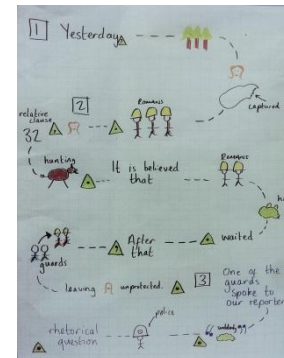 1 Yesterday
captured
relative clause 2 Romans
32
hunting It is believed that Romans
After that waited
guards
leaving unprotected. 3 One of the guards spoke to our reporter
police
rhetorical question